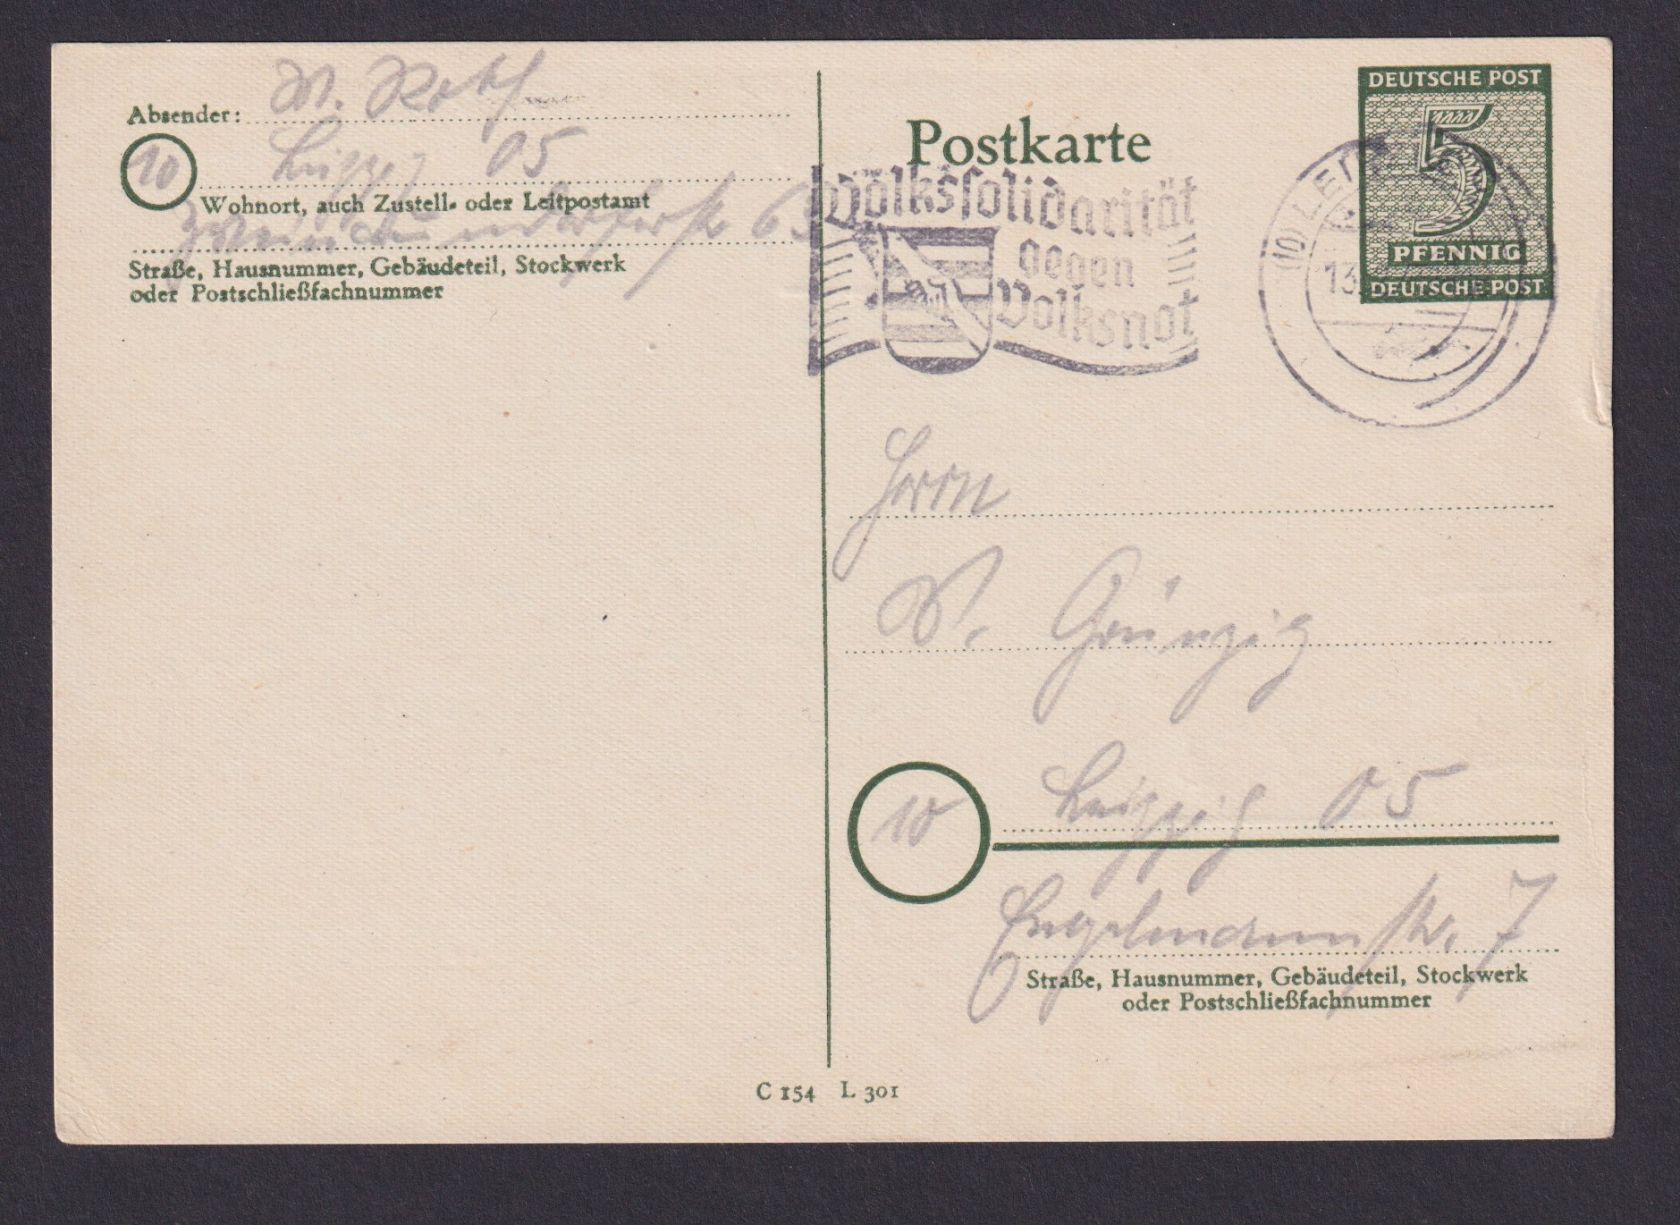 Absender: W. Roth
10 Leipzig 05
Wohnort, auch Zustell- oder Leitpostamt
Zweinaundorferstr 63
Straße, Hausnummer, Gebäudeteil, Stockwerk
oder Postschließfachnummer
Postkarte
DEUTSCHE POST
5
PFENNIG
DEUTSCHE POST
Volkssolidarität
gegen
Volksnot
(10) LEIP
13.
Herrn
W. Grünzig
10 Leipzig 05
Engelmannstr. 7
Straße, Hausnummer, Gebäudeteil, Stockwerk
oder Postschließfachnummer
C 154 L 301